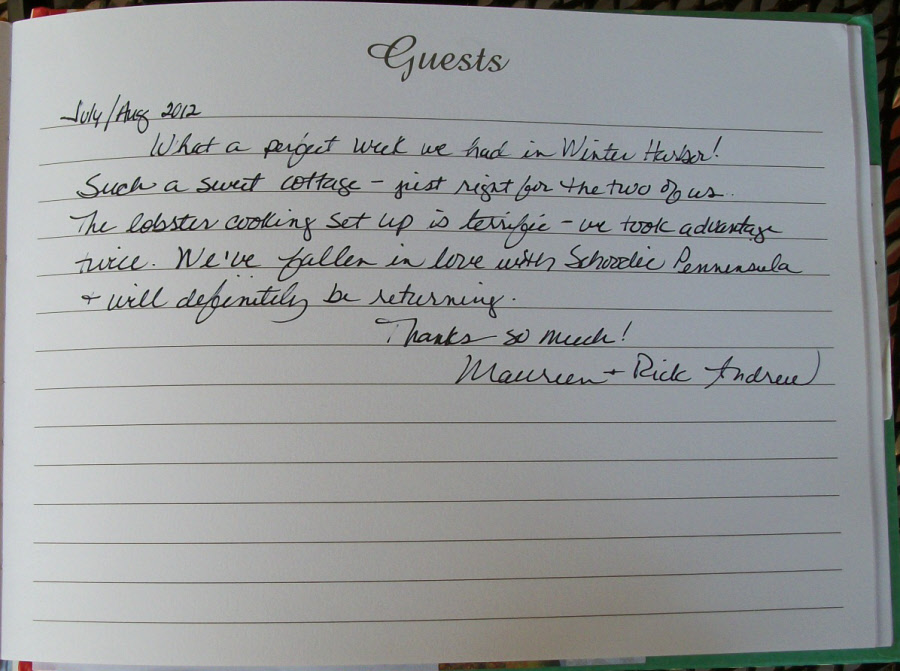 Guests
July/Aug 2012
What a perfect week we had in Winter Harbor!
Such a sweet cottage - just right for the two of us.
The lobster cooking set up is terrific - we took advantage
twice. We've fallen in love with Schoodic Penninsula
+ will definitely be returning.
Thanks so much!
Maureen + Rick Andrew